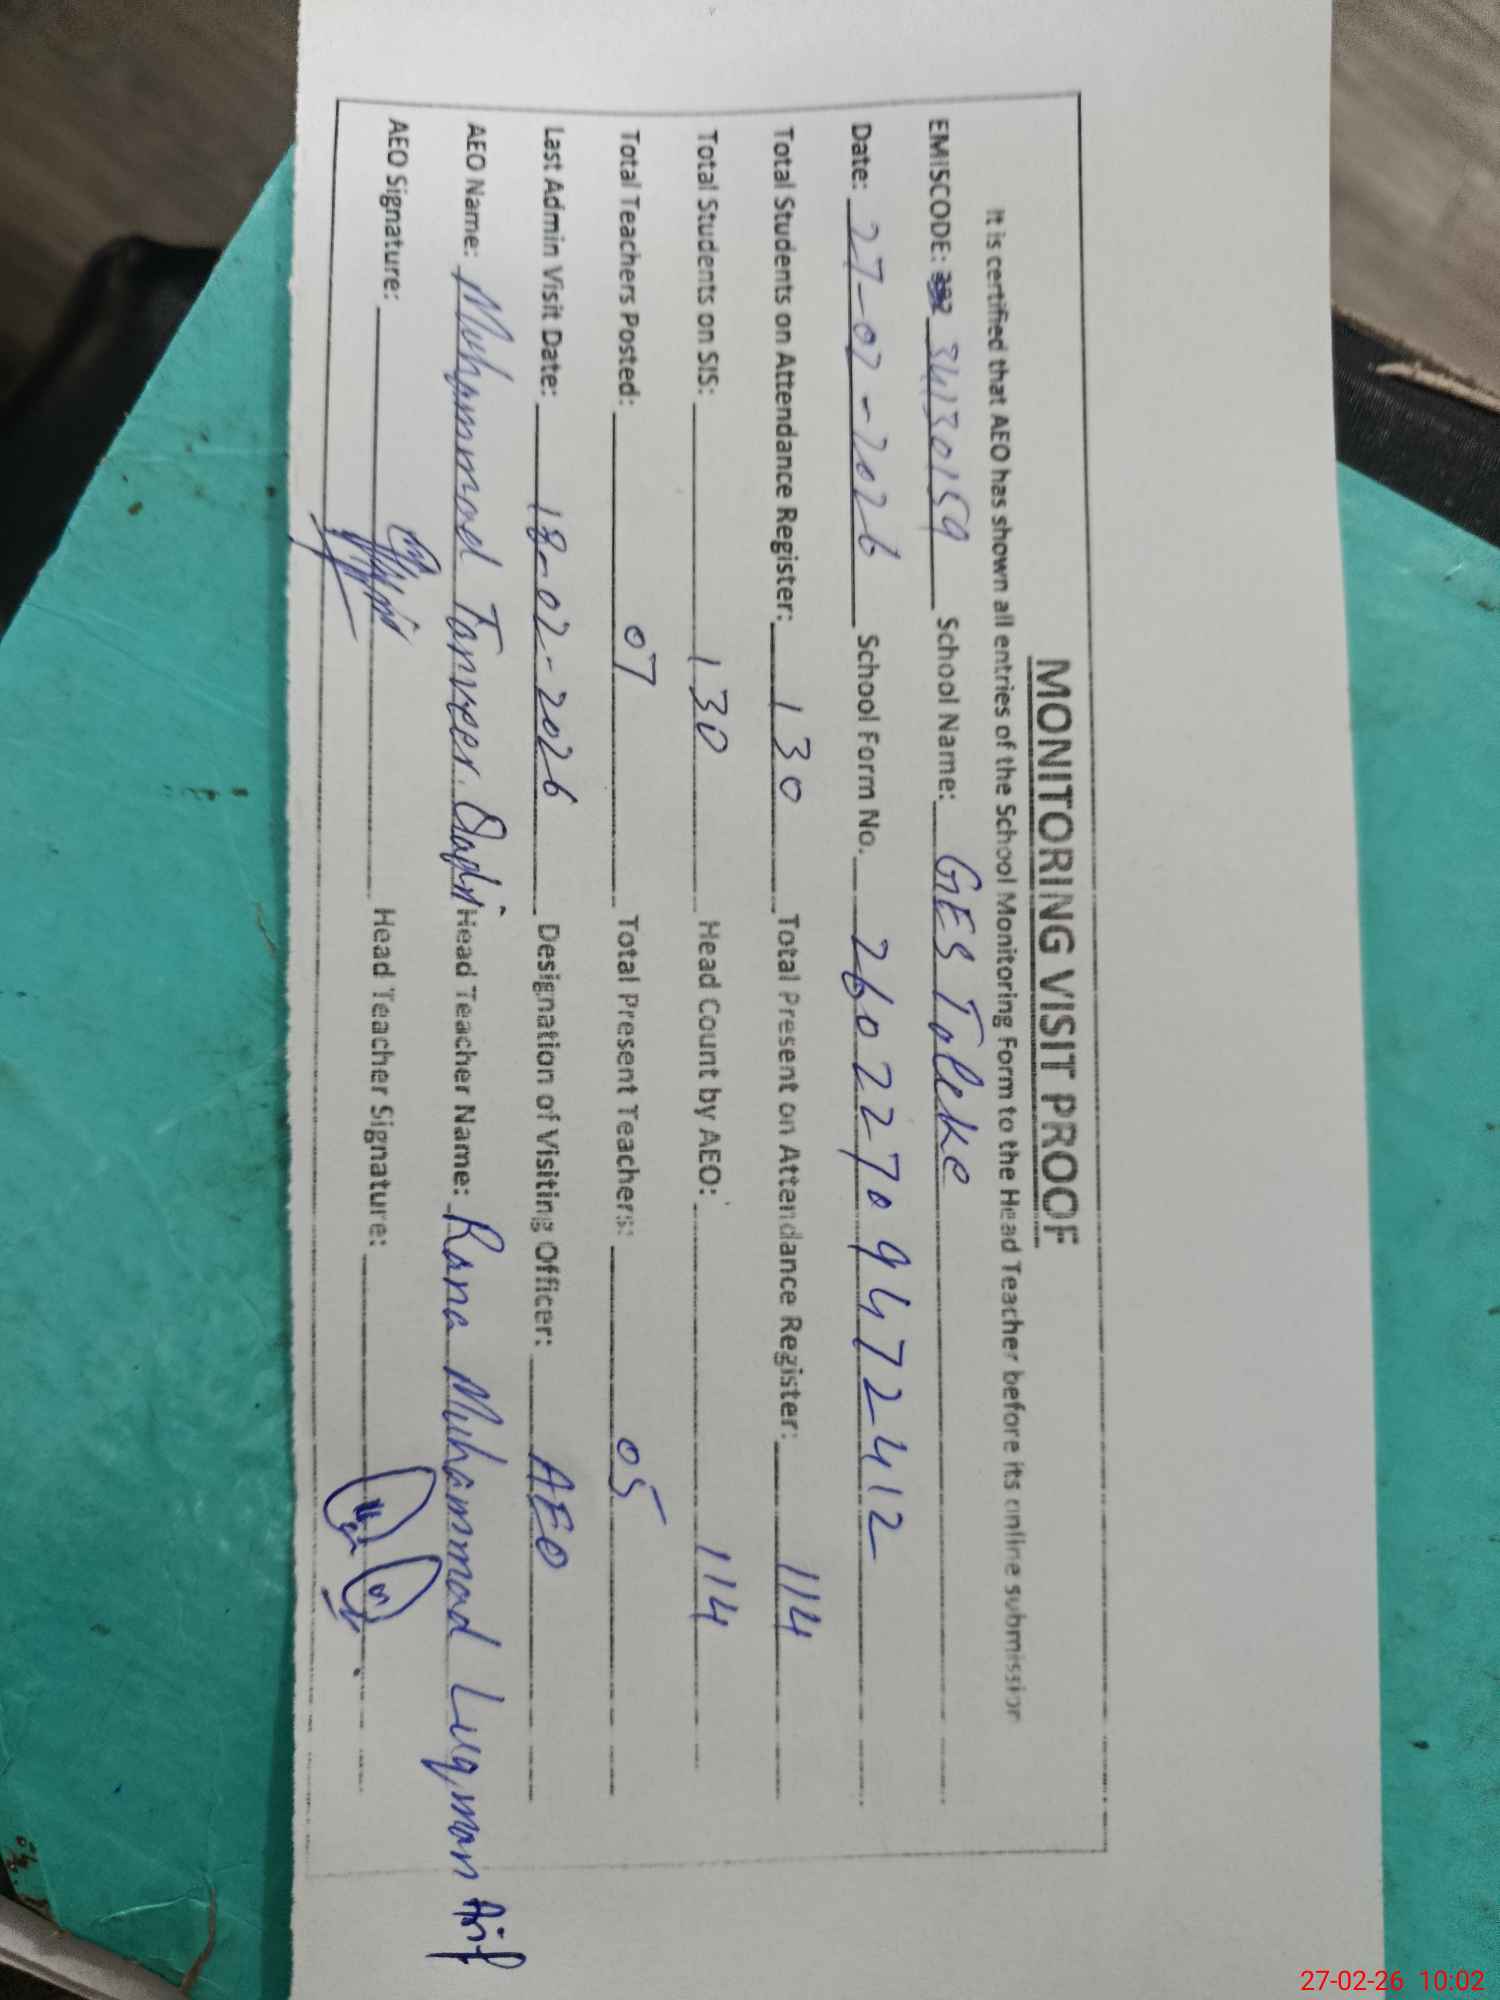 MONITORING VISIT PROOF
It is certified that AEO has shown all entries of the School Monitoring Form to the Head Teacher before its online submission
EMISCODE: 34130159 School Name: GES Toleke
Date: 27-02-2026 School Form No. 26022709472412
Total Students on Attendance Register: 130 Total Present on Attendance Register: 114
Total Students on SIS: 130 Head Count by AEO: 114
Total Teachers Posted: 07 Total Present Teachers: 05
Last Admin Visit Date: 18-02-2026 Designation of Visiting Officer: AEO
AEO Name: Muhammad Tanveer Qadri Head Teacher Name: Rana Muhammad Luqman Arif
AEO Signature: Head Teacher Signature:
27-02-26 10:02